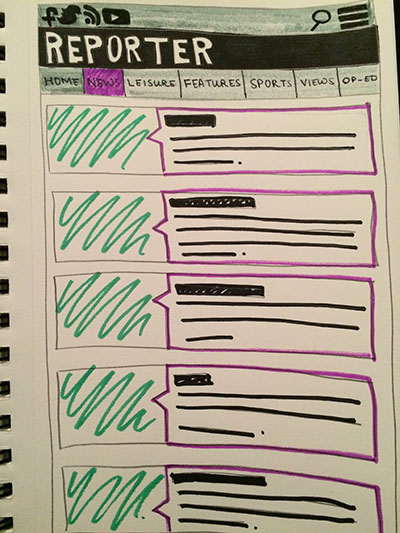 REPORTER
HOME NEWS LEISURE FEATURES SPORTS VIEWS OP-ED